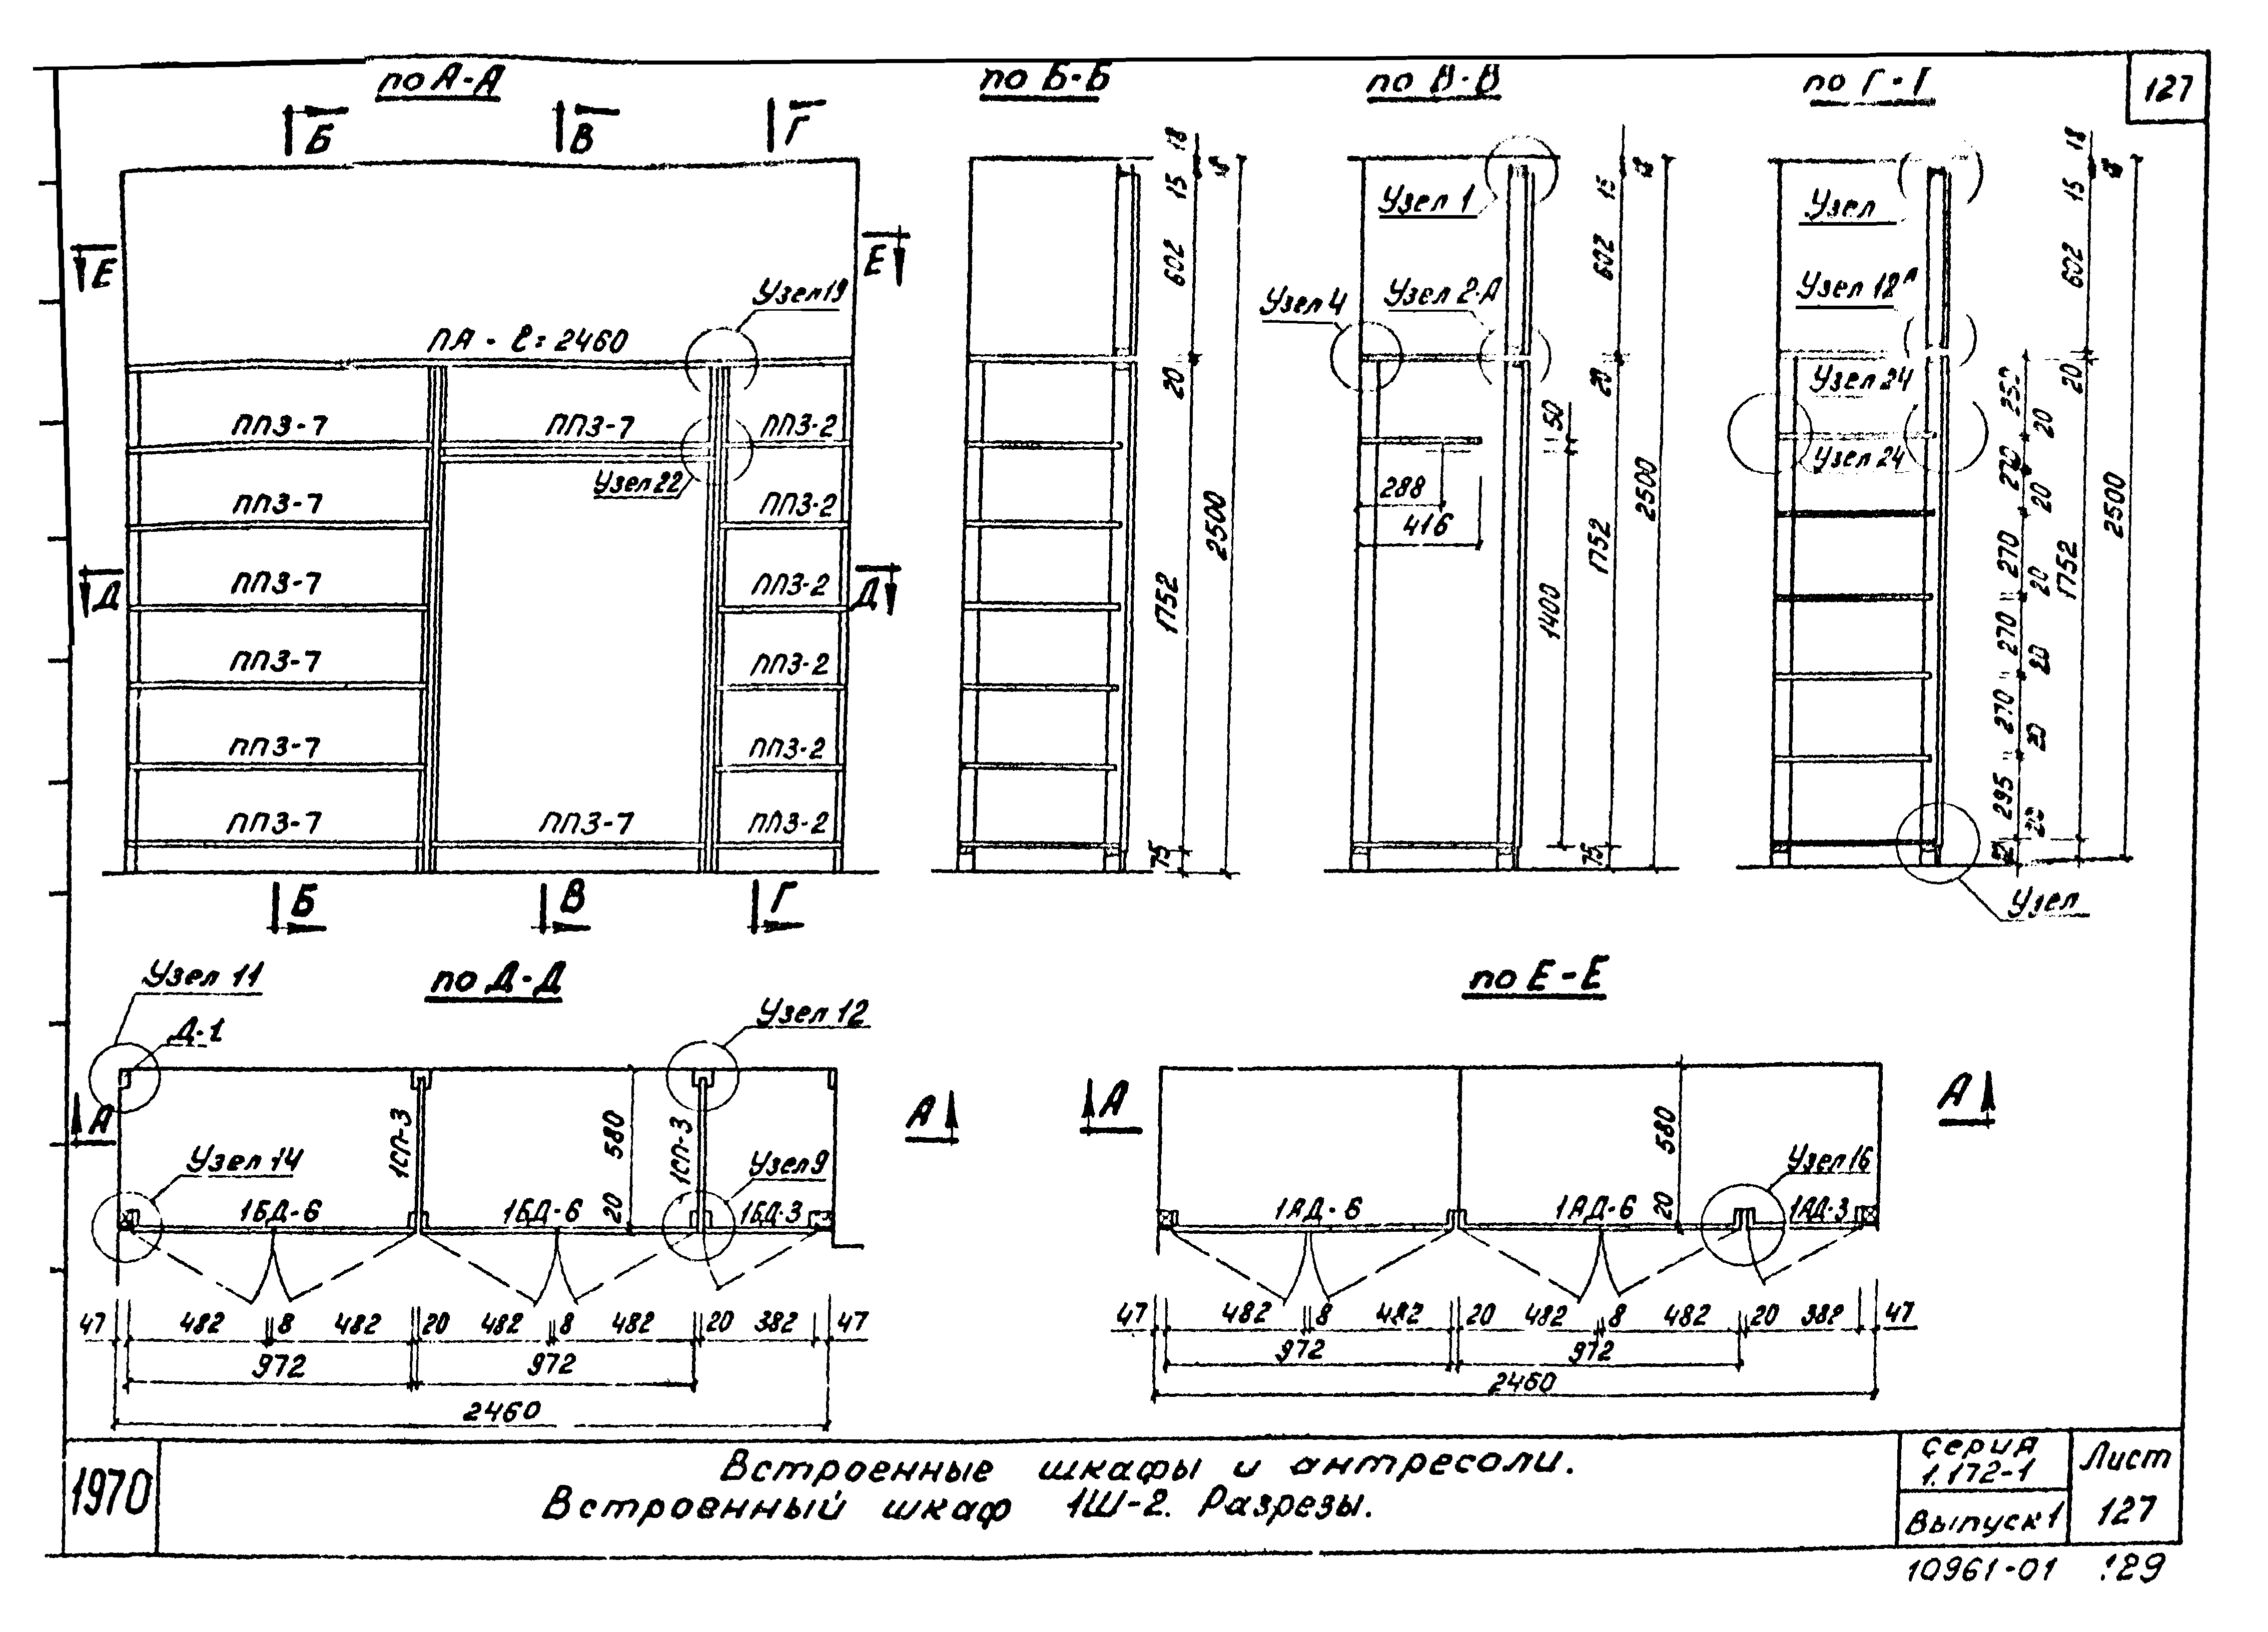 127
по А-А
по Б-Б
по В-В
по Г-Г
Б
В
Г
Е
Е
Узел 19
ПА - ℓ = 2460
ПП3-7
ПП3-7
ПП3-2
Узел 22
ПП3-7
ПП3-2
Д
ПП3-7
ПП3-2
Д
ПП3-7
ПП3-2
ПП3-7
ПП3-2
ПП3-7
ПП3-7
ПП3-2
Б
В
Г
18
15
602
20
1752
75
2500
Узел 1
Узел 4
Узел 2-А
288
416
50
1400
15
602
20
1752
75
2500
Узел
Узел 18А
Узел 24
Узел 24
Узел
250
20
270
20
270
20
270
20
270
20
295
20
18
15
602
20
1752
2500
по Д-Д
Узел 11
Д-1
Узел 12
А
А
1СП-3
580
20
1СП-3
Узел 14
Узел 9
1БД-6
1БД-6
1БД-3
47 482 8 482 20 482 8 482 20 382 47
972 972
2460
по Е-Е
А
А
580
20
Узел 16
1АД-6
1АД-6
1АД-3
47 482 8 482 20 482 8 482 20 382 47
972 972
2460
1970
Встроенные шкафы и антресоли.
Встроенный шкаф 1Ш-2. Разрезы.
серия
1.172-1
Выпуск 1
Лист
127
10961-01 129